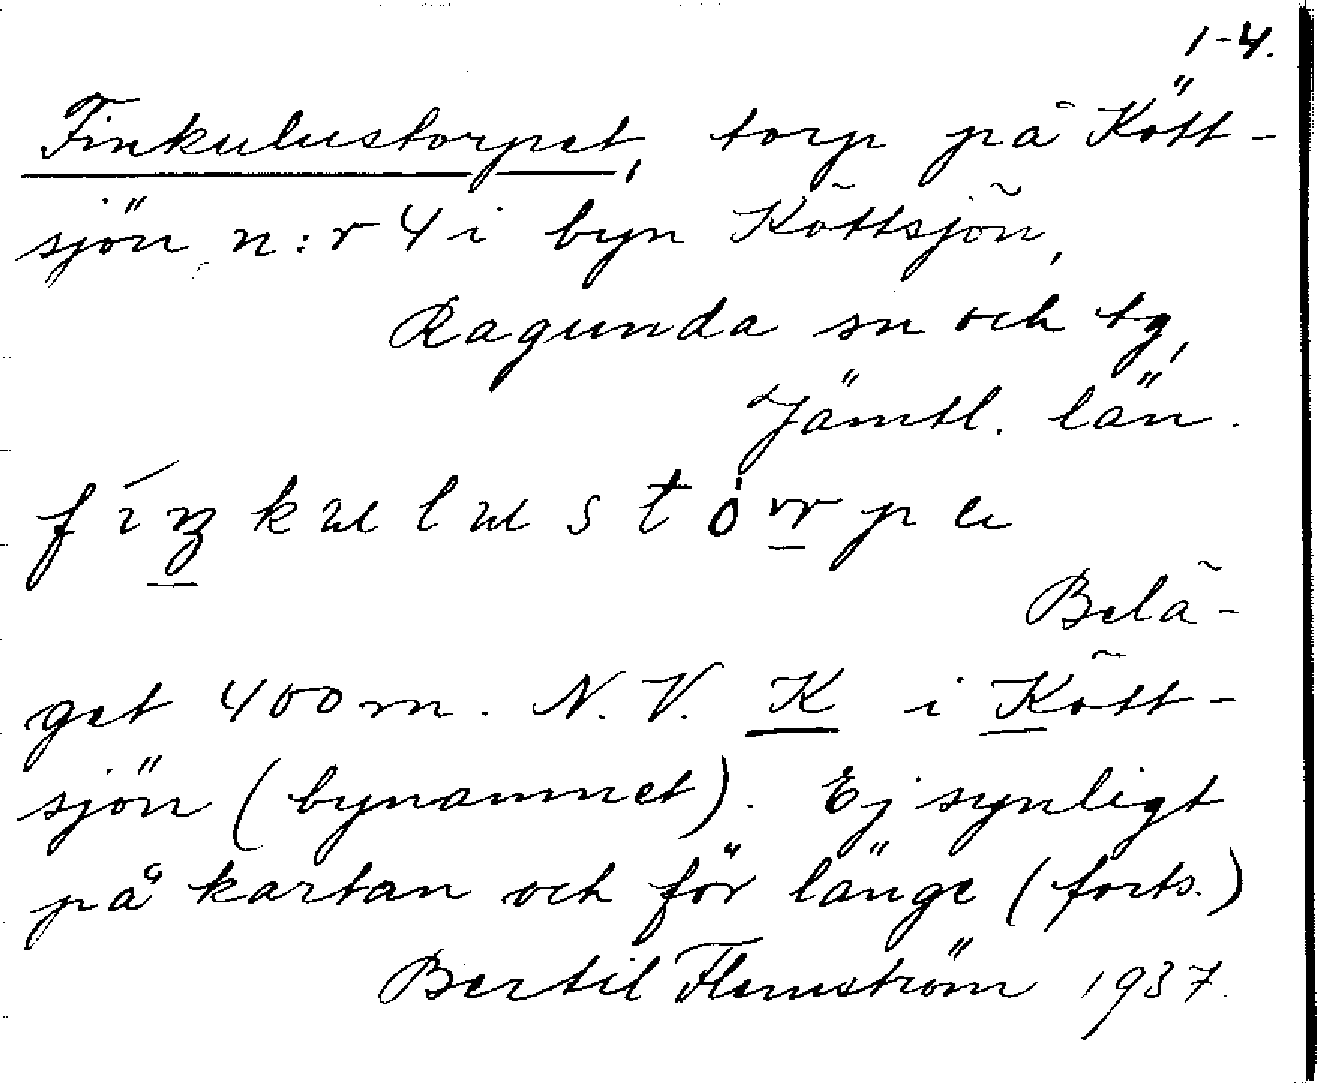 1-4.
Finkulustorpet, torp på Kött-
sjön n:r 4 i byn Köttsjön,
Ragunda sn och tg,
Jämtl. län.
Belä-
get 400 m. N.V. K i Kött-
sjön (bynamnet). Ej synligt
på kartan och för länge (forts.)
Bertil Flemström 1937.